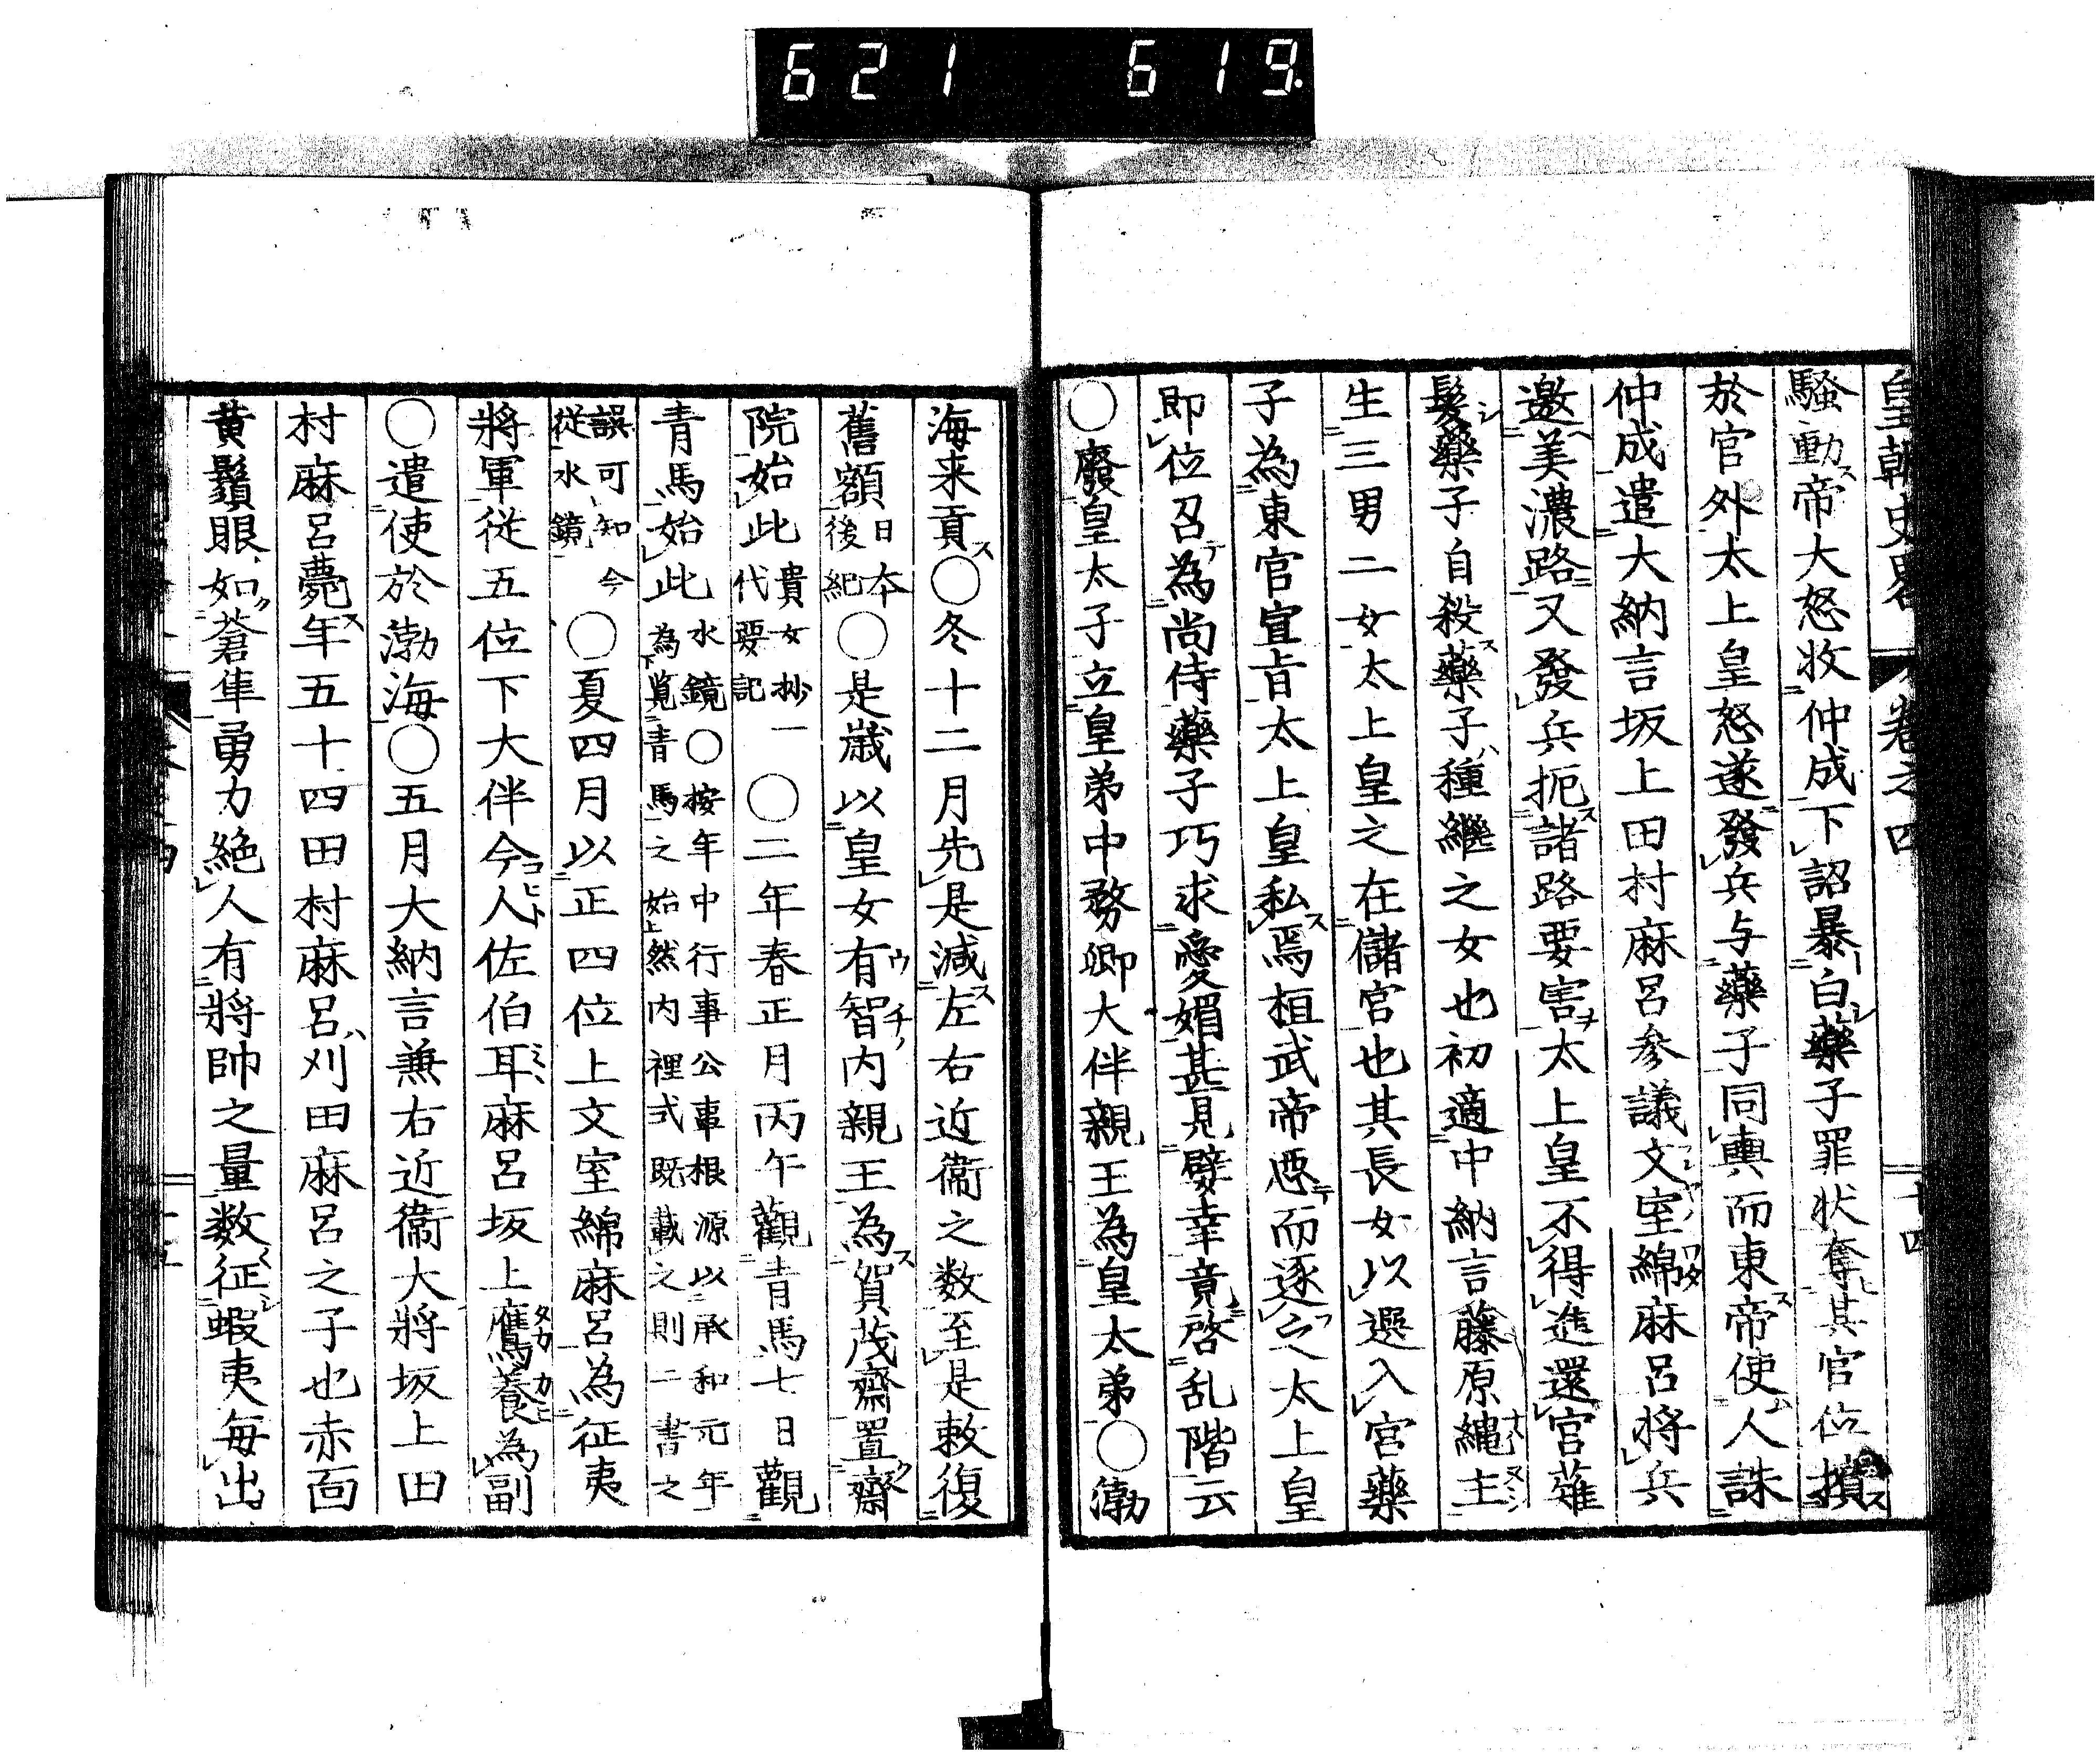 621 619.
皇朝史畧 卷之四 十四
騷動帝大怒收仲成下詔暴白藥子罪状奪其官位擯
於官外太上皇怒遂發兵与藥子同輿而東帝使人誅
仲成遣大納言坂上田村麻呂參議文室綿麻呂将兵
邀美濃路又發兵扼諸路要害太上皇不得進還宮薙
髮藥子自殺藥子種繼之女也初適中納言藤原縄主
生三男二女太上皇之在儲宮也其長女以選入宮藥
子為東宮宣旨太上皇私焉桓武帝惡而逐之太上皇
即位召為尚侍藥子巧求愛媚甚見嬖幸竟啓乱階云
○廢皇太子立皇弟中務卿大伴親王為皇太弟○渤
海来貢○冬十二月先是減左右近衞之数至是敕復
舊額日本後紀○是歳以皇女有智内親王為賀茂齋置齋
院始此貴女抄一代要記○二年春正月丙午觀青馬七日觀
青馬始此水鏡○按年中行事公事根源以承和元年為覧青馬之始然内裡式既載之則二書之
誤可知今從水鏡○夏四月以正四位上文室綿麻呂為征夷
將軍從五位下大伴今人佐伯耳麻呂坂上鷹養為副
○遣使於渤海○五月大納言兼右近衞大將坂上田
村麻呂薨年五十四田村麻呂刈田麻呂之子也赤面
黄鬚眼如蒼隼勇力絶人有將帥之量数征蝦夷毎出